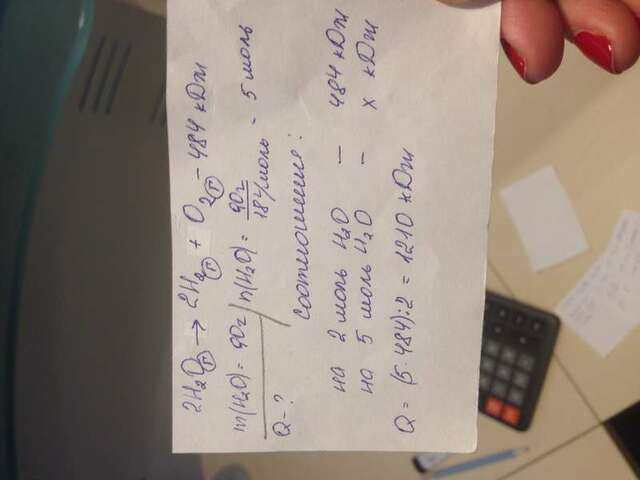 2H₂O(г) → 2H₂(г) + O₂(г) - 484 кДж
m(H₂O) = 90г n(H₂O) = 90г / 18г/моль = 5 моль
Q - ?
соотношение:
на 2 моль H₂O — 484 кДж
на 5 моль H₂O — x кДж
Q = (5·484):2 = 1210 кДж